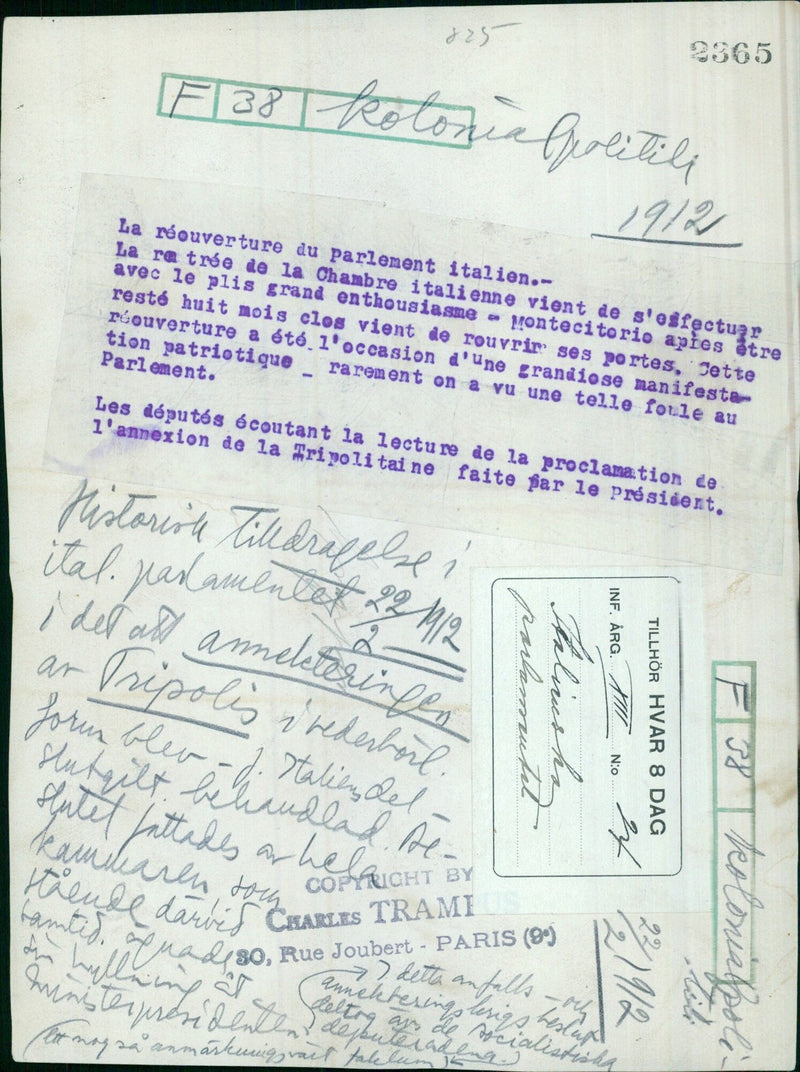 825
2365
F 38 Kolonialpolitik
1912
La réouverture du parlement italien.-
La rentrée de la Chambre italienne vient de s'effectuer
avec le plis grand enthousiasme - Montecitorio après être
resté huit mois clos vient de rouvrir ses portes. Cette
réouverture a été l'occasion d'une grandiose manifesta-
tion patriotique _ rarement on a vu une telle foule au
Parlement.
Les députés écoutant la lecture de la proclamation de
l'annexion de la Tripolitaine faite par le Président.
Historisk Tilldragelse i
ital. parlamentet 22/2 1912
i det att annekteringen
av Tripolis i vederbörl.
form blev - f. Italiens del -
slutgilt behandlad. Be-
slutet fattades av hela
kammaren, som
stående därvid
samtid. ägnade
sin hyllning åt
ministerpresidenten.
(I detta anfalls- och
annekteringskrigs beslut
deltog även de socialistiska
deputerade
(ett nog så anmärkningsvärt faktum)
COPYRIGHT BY
CHARLES TRAMPUS
30, Rue Joubert - PARIS (9e)
TILLHÖR HVAR 8 DAG
INF. ÅRG. XIII N:o 24
Italienska
parlamentet
22/2 1912
F 38 Kolonialpoli-
tik